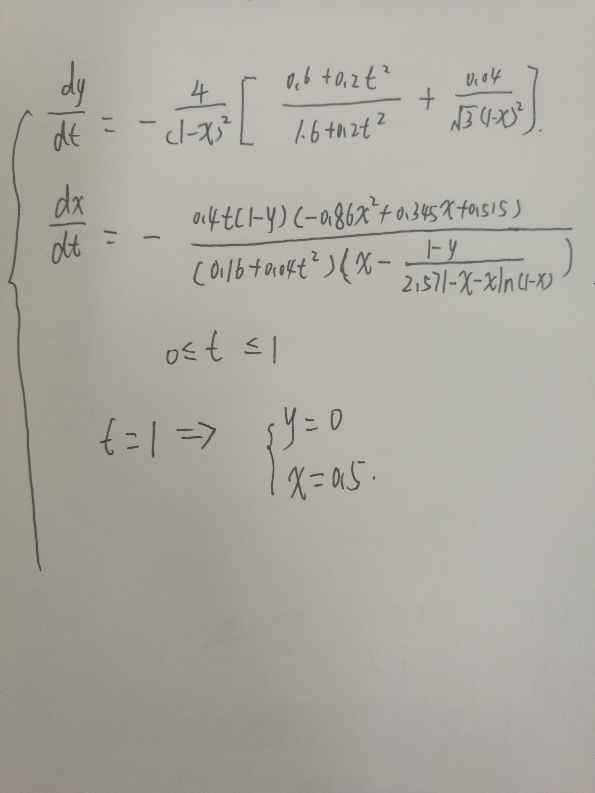 dy/dt = - 4/(1-x)² [ (0.6+0.2t²)/(1.6+0.2t²) + 0.04/(√3(1-x)²) ].
dx/dt = - (0.4t(1-y)(-0.86x²+0.345x+0.515))/((0.16+0.04t²)(x - (1-y)/(2.571-x-xln(1-x))))
0≤ t ≤ 1
t=1 ⇒ { y=0
x=0.5.